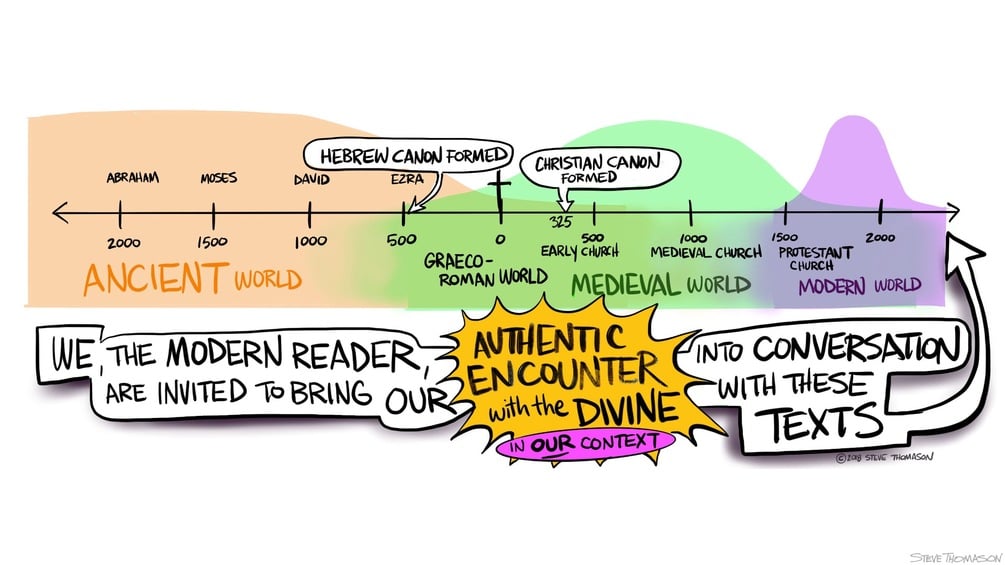 HEBREW CANON FORMED
CHRISTIAN CANON
FORMED
ABRAHAM
MOSES
DAVID
EZRA
325
2000
1500
1000
500
0
500
1000
1500
2000
EARLY CHURCH
MEDIEVAL CHURCH
PROTESTANT
CHURCH
ANCIENT WORLD
GRAECO-
ROMAN WORLD
MEDIEVAL WORLD
MODERN WORLD
WE, THE MODERN READER,
ARE INVITED TO BRING OUR
AUTHENTIC
ENCOUNTER
with the DIVINE
IN OUR CONTEXT
INTO CONVERSATION
WITH THESE
TEXTS
©2018 STEVE THOMASON
STEVE THOMASON